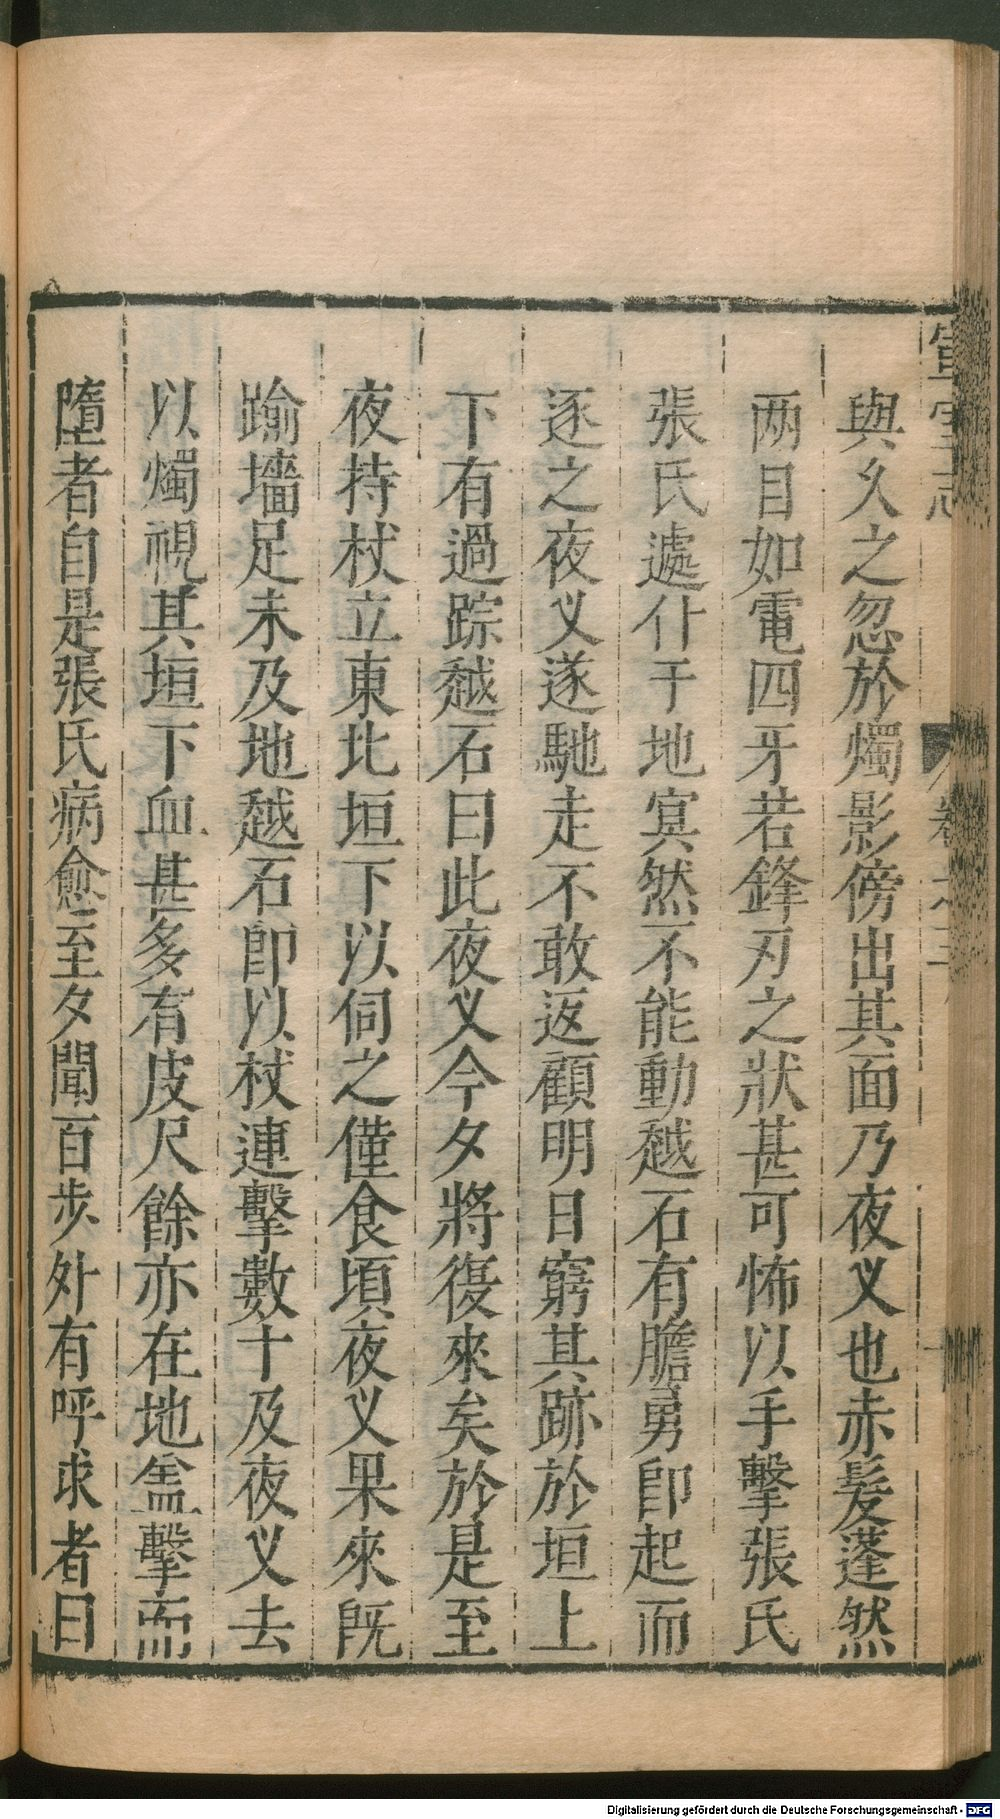 與久之忽於燭影傍出其面乃夜义也赤髮蓬然
两目如電四牙若鋒刃之狀甚可怖以手擊張氏
張氏遽仆于地㝠然不能動越石有膽勇卽起而
逐之夜义遂馳走不敢返顧明日窮其跡於垣上
下有過踪越石曰此夜义今夕將復來矣於是至
夜持杖立東北垣下以伺之僅食頃夜义果來旣
踰墻足未及地越石卽以杖連擊數十及夜义去
以燭視其垣下血甚多有皮尺餘亦在地盖擊而
墮者自是張氏病愈至夕聞百步外有呼求者曰
Digitalisierung gefördert durch die Deutsche Forschungsgemeinschaft - DFG